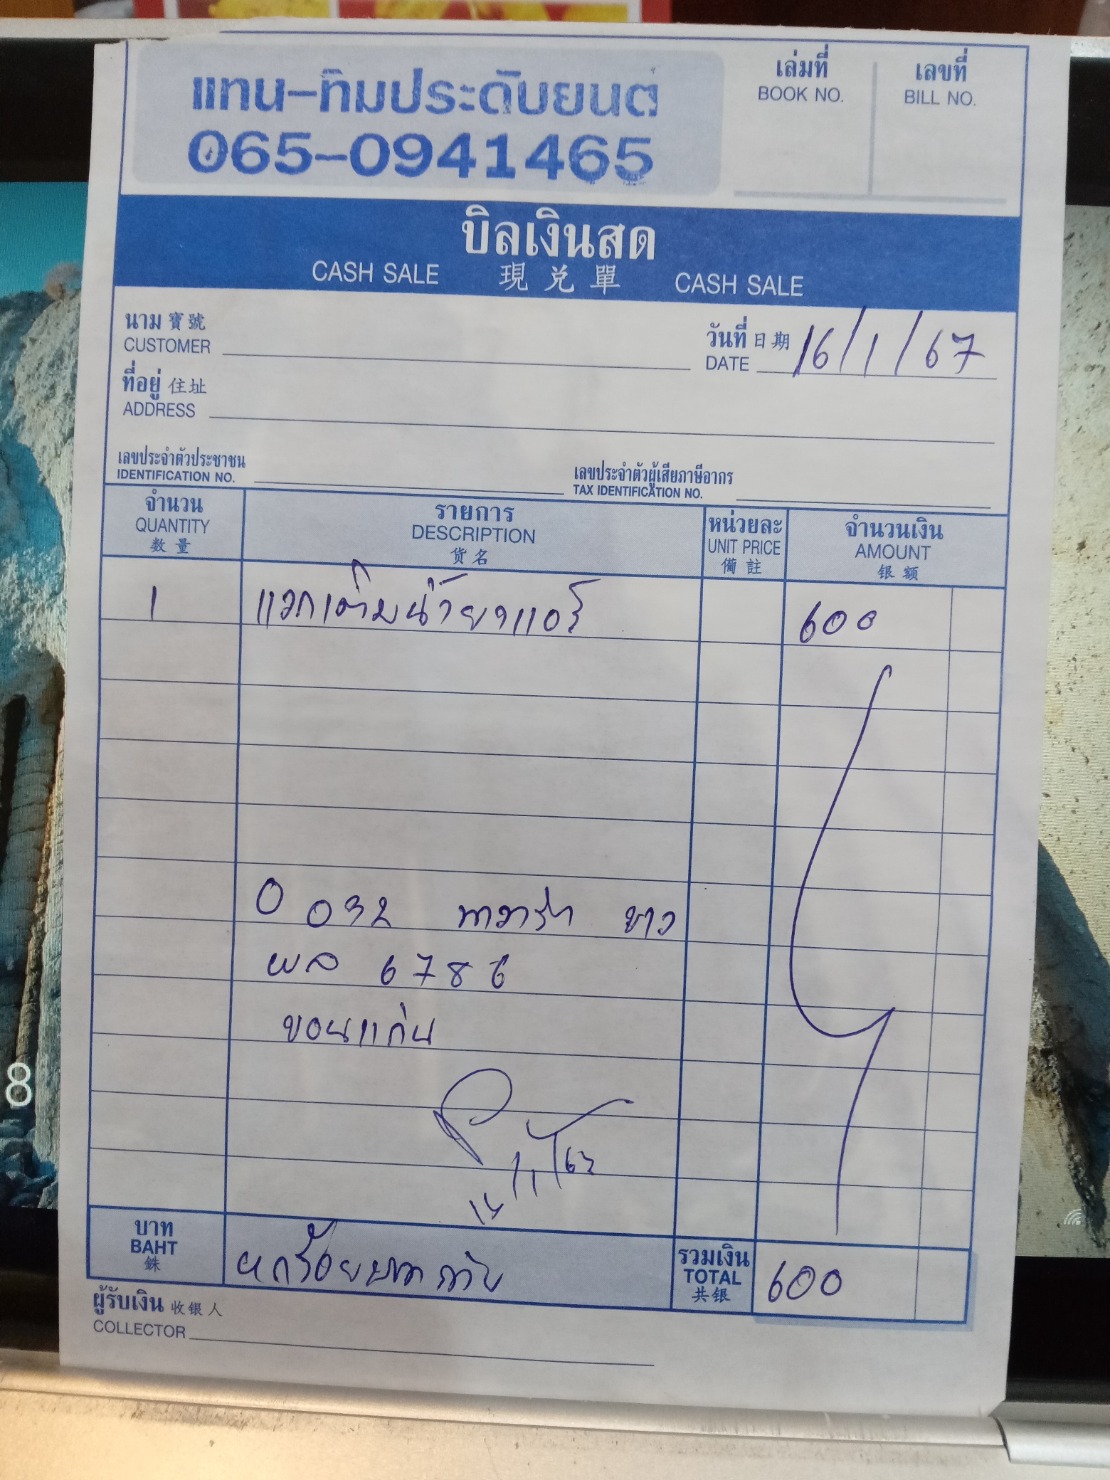 แทน-ทิมประดับยนต์
065-0941465
เล่มที่
BOOK NO.
เลขที่
BILL NO.
บิลเงินสด
CASH SALE 現兌單 CASH SALE
นาม 寶號
CUSTOMER
วันที่ 日期
DATE 16/1/67
ที่อยู่ 住址
ADDRESS
เลขประจำตัวประชาชน
IDENTIFICATION NO.
เลขประจำตัวผู้เสียภาษีอากร
TAX IDENTIFICATION NO.
จำนวน
QUANTITY
数量
รายการ
DESCRIPTION
货名
หน่วยละ
UNIT PRICE
備註
จำนวนเงิน
AMOUNT
银额
1 แวกเติมน้ำยาแอร์ 600
032 นาวาร่า ขาว
ผล 6786
ขอนแก่น
บาท
BAHT
銖
หกร้อยบาทถ้วน
รวมเงิน
TOTAL
共银
600
ผู้รับเงิน 收银人
COLLECTOR